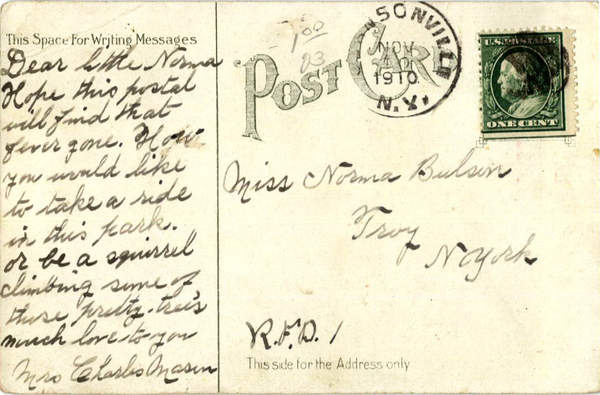 This Space For Writing Messages
Dear little Norma
Hope this postal
will find that
fever gone. How
you would like
to take a ride
in this park.
or be a squirrel
climbing some of
those pretty trees
much love to you
Mrs Charles Mason
1.00
03
POST CARD
SONVILLE
NOV
1910
N.Y.
U.S. POSTAGE
ONE CENT
Miss Norma Bulson
Troy
N. York
R.F.D. 1
This side for the Address only